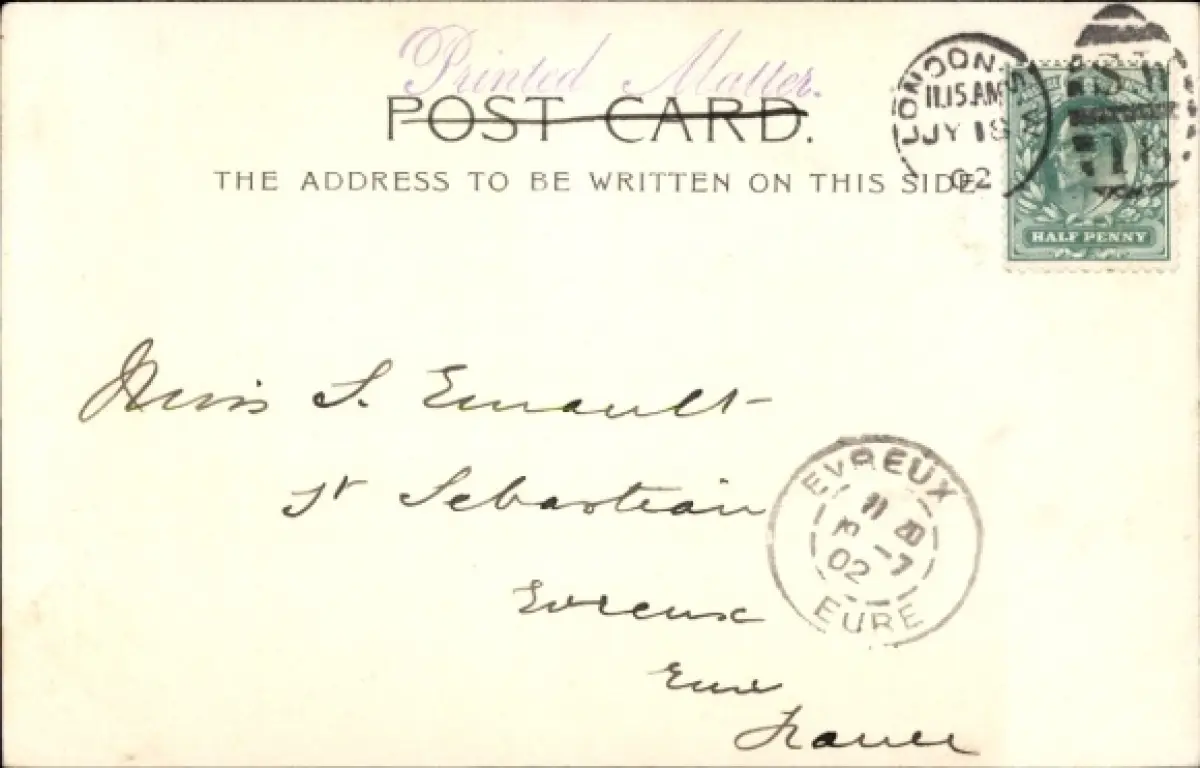 Printed Matter.
POST CARD.
THE ADDRESS TO BE WRITTEN ON THIS SIDE
LONDON. S.W
11.15 AM
JY 18
02
HALF PENNY
Miss S. Ernault
St Sebastian
Evreux
Eure
France
EVREUX
02
EURE